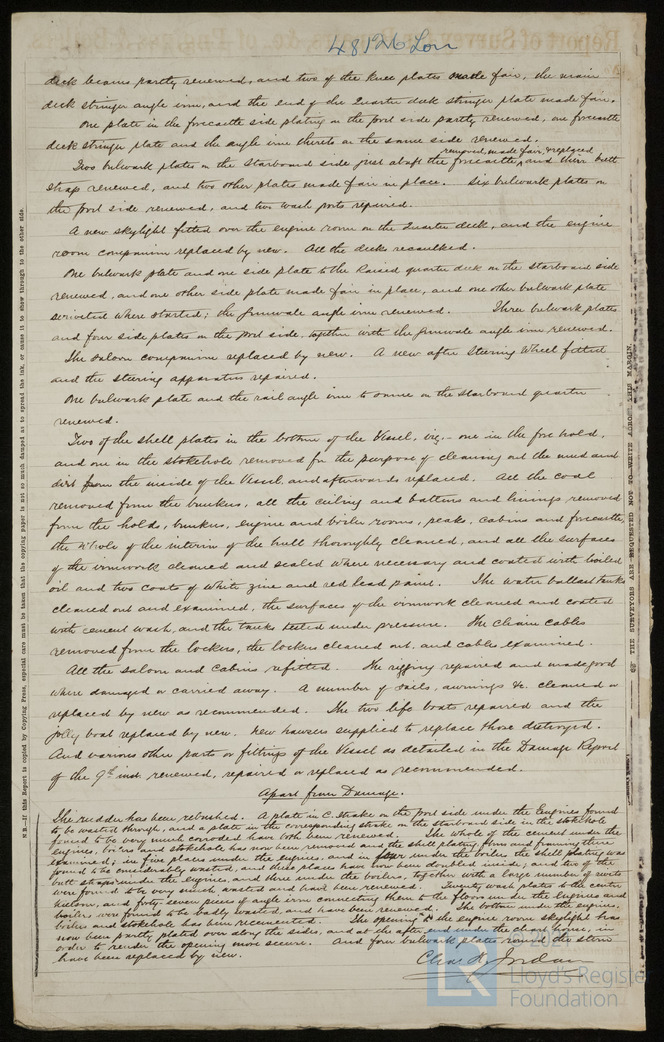 48126 Lon
deck beams partly renewed, and two of the knee plates made fair, the main
deck stringer angle iron, and the end of the Quarter deck stringer plate made fair.
One plate in the forecastle side plating on the port side partly renewed, one forecastle
deck stringer plate and the angle iron thereto on the same side renewed.
removed, made fair, & replaced
Two bulwark plates on the starboard side just abaft the forecastle, and their butt
straps renewed, and two other plates made fair in place. Six bulwark plates on
the port side renewed, and two wash ports repaired.
A new skylight fitted over the engine room on the Quarter deck, and the engine
room companion replaced by new. All the decks recaulked.
One bulwark plate and one side plate to the Raised quarter deck on the starboard side
renewed, and one other side plate made fair in place, and one other bulwark plate
rerivetted where started; the gunwale angle iron renewed. Three bulwark plates
and four side plates on the port side, together with the gunwale angle iron renewed.
The saloon companion replaced by new. A new after Steering Wheel fitted
and the steering apparatus repaired.
One bulwark plate and the rail angle iron to same on the starboard quarter
renewed.
Two of the shell plates in the bottom of the Vessel, viz:- one in the fore hold,
and one in the stokehole removed for the purpose of cleaning out the mud and
dirt from the inside of the Vessel, and afterwards replaced. All the coal
removed from the bunkers, all the ceiling and battens and linings removed
from the holds, bunkers, engine and boiler rooms, peaks, cabins and forecastle,
the whole of the interior of the hull thoroughly cleaned, and all the surfaces
of the ironwork cleaned and scaled where necessary and coated with boiled
oil and two coats of white zinc and red lead paint. The water ballast tanks
cleaned out and examined, the surfaces of the ironwork cleaned and coated
with cement wash, and the tanks tested under pressure. The chain cables
removed from the lockers, the lockers cleaned out, and cables examined.
All the saloon and cabins refitted. The rigging repaired and made good
where damaged or carried away. A number of sails, awnings &c. cleaned or
replaced by new as recommended. The two life boats repaired and the
jolly boat replaced by new. New hawsers supplied to replace those destroyed.
And various other parts or fittings of the Vessel as detailed in the Damage Report
of the 9th inst. renewed, repaired or replaced as recommended.
Apart from Damage.
The rudder has been rebushed. A plate in C. Strake on the port side under the Engines found
to be wasted through, and a plate in the corresponding strake on the starboard side in the stokehole
found to be very much corroded have both been renewed. The whole of the cement under the
engines, boilers and stokehole has now been removed and the shell plating, floors and framing there
examined; in five places under the engines, and in four under the boilers the shell plating was
found to be considerably wasted, and these places have now been doubled inside; and two of the
butt straps under the engines, and three under the boilers, together with a large number of rivets
were found to be very much wasted and have been renewed. Twenty wash plates to the center
kielson, and forty seven pieces of angle iron connecting them to the floors under the Engines and
boilers were found to be badly wasted, and have been renewed. The bottom under the engines
boilers and stokehole has been recemented. The opening to the engine room skylight has
now been partly plated over along the sides, and at the after end under the chart house, in
order to render the opening more secure. And four bulwark plates round the stern
have been replaced by new.
Chas. R. Jordan
N.B.—If this Report is copied by Copying Press, especial care must be taken that the copying paper is not so much damped as to spread the ink, or cause it to show through to the other side.
THE SURVEYORS ARE REQUESTED NOT TO WRITE ACROSS THIS MARGIN.
© 2021
LR
Lloyd's Register
Foundation